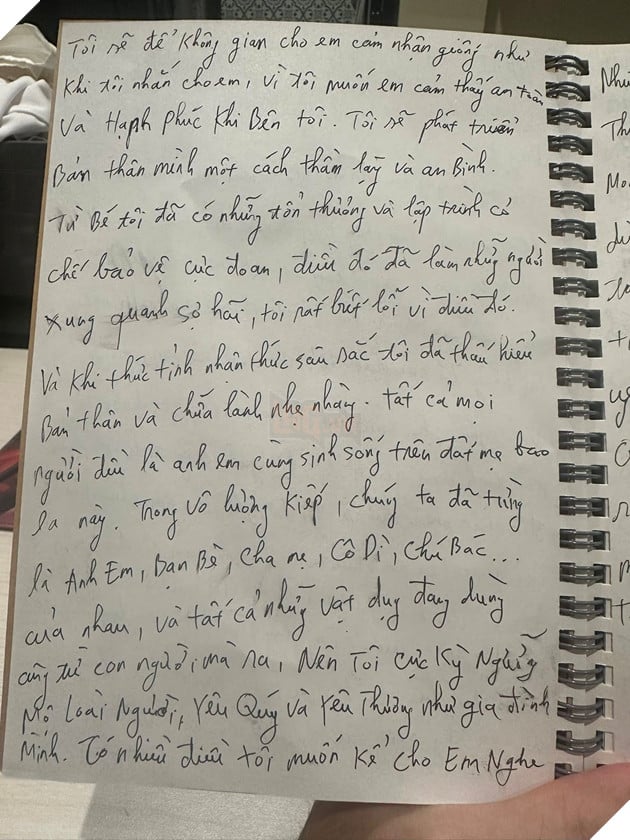 Tôi sẽ để không gian cho em cảm nhận giống như
khi tôi nhắn cho em, vì tôi muốn em cảm thấy an toàn
Và Hạnh Phúc Khi Bên tôi. Tôi sẽ phát triển
Bản thân mình một cách thầm lặng và an Bình.
Từ Bé tôi đã có những tổn thương và lập trình cơ
chế bảo vệ cực đoan, điều đó đã làm những người
xung quanh sợ hãi, tôi rất biết lỗi vì điều đó.
Và Khi thức tỉnh nhận thức sâu sắc tôi đã thấu hiểu
Bản thân và chữa lành nhẹ nhàng. Tất cả mọi
người đều là anh em cùng sinh sống trên đất mẹ bao
la này. Trong Vô lượng Kiếp, chúng ta đã từng
là Anh Em, Bạn Bè, Cha mẹ, Cô Dì, Chú Bác...
của nhau, và tất cả những vật dụng đang dùng
cũng từ con người mà ra, Nên Tôi cực Kỳ Ngưỡng
Mộ Loài Người, Yêu Quý và Yêu Thương như gia đình
Mình. Có nhiều điều tôi muốn Kể cho Em Nghe